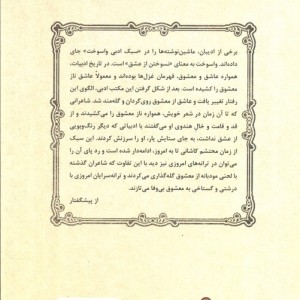 برخی از ادیبان، ماشین‌نوشته‌ها را در «سبک ادبی واسوخت» جای
داده‌اند. واسوخت به معنای «نسوختن از عشق» است. در تاریخ ادبیات،
همواره عاشق و معشوق، قهرمان غزل‌ها بوده‌اند و معمولاً عاشق ناز
معشوق را کشیده است. بعد از شکل گرفتن این مکتب ادبی، الگوی این
رفتار تغییر یافت و عاشق از معشوق روی‌گردان و گله‌مند شد. شاعرانی
که تا آن زمان در شعر خویش، همواره ناز معشوق را می‌کشیدند و از
قد و قامت و خالِ هندوی او می‌گفتند، با ادبیاتی که دیگر رنگ‌وبویی
از عشق نداشت، به جای ستایش یار، او را سرزنش کردند. این سبک
از زمان محتشم کاشانی تا به امروز، ادامه‌دار شده است و رد پای آن را
می‌توان در ترانه‌های امروزی نیز دید با این تفاوت که شاعران گذشته
با لحنی مودبانه از معشوق گله‌گذاری می‌کردند و ترانه‌سرایان امروزی با
درشتی و گستاخی به معشوق بی‌وفا می‌تازند.
از پیشگفتار